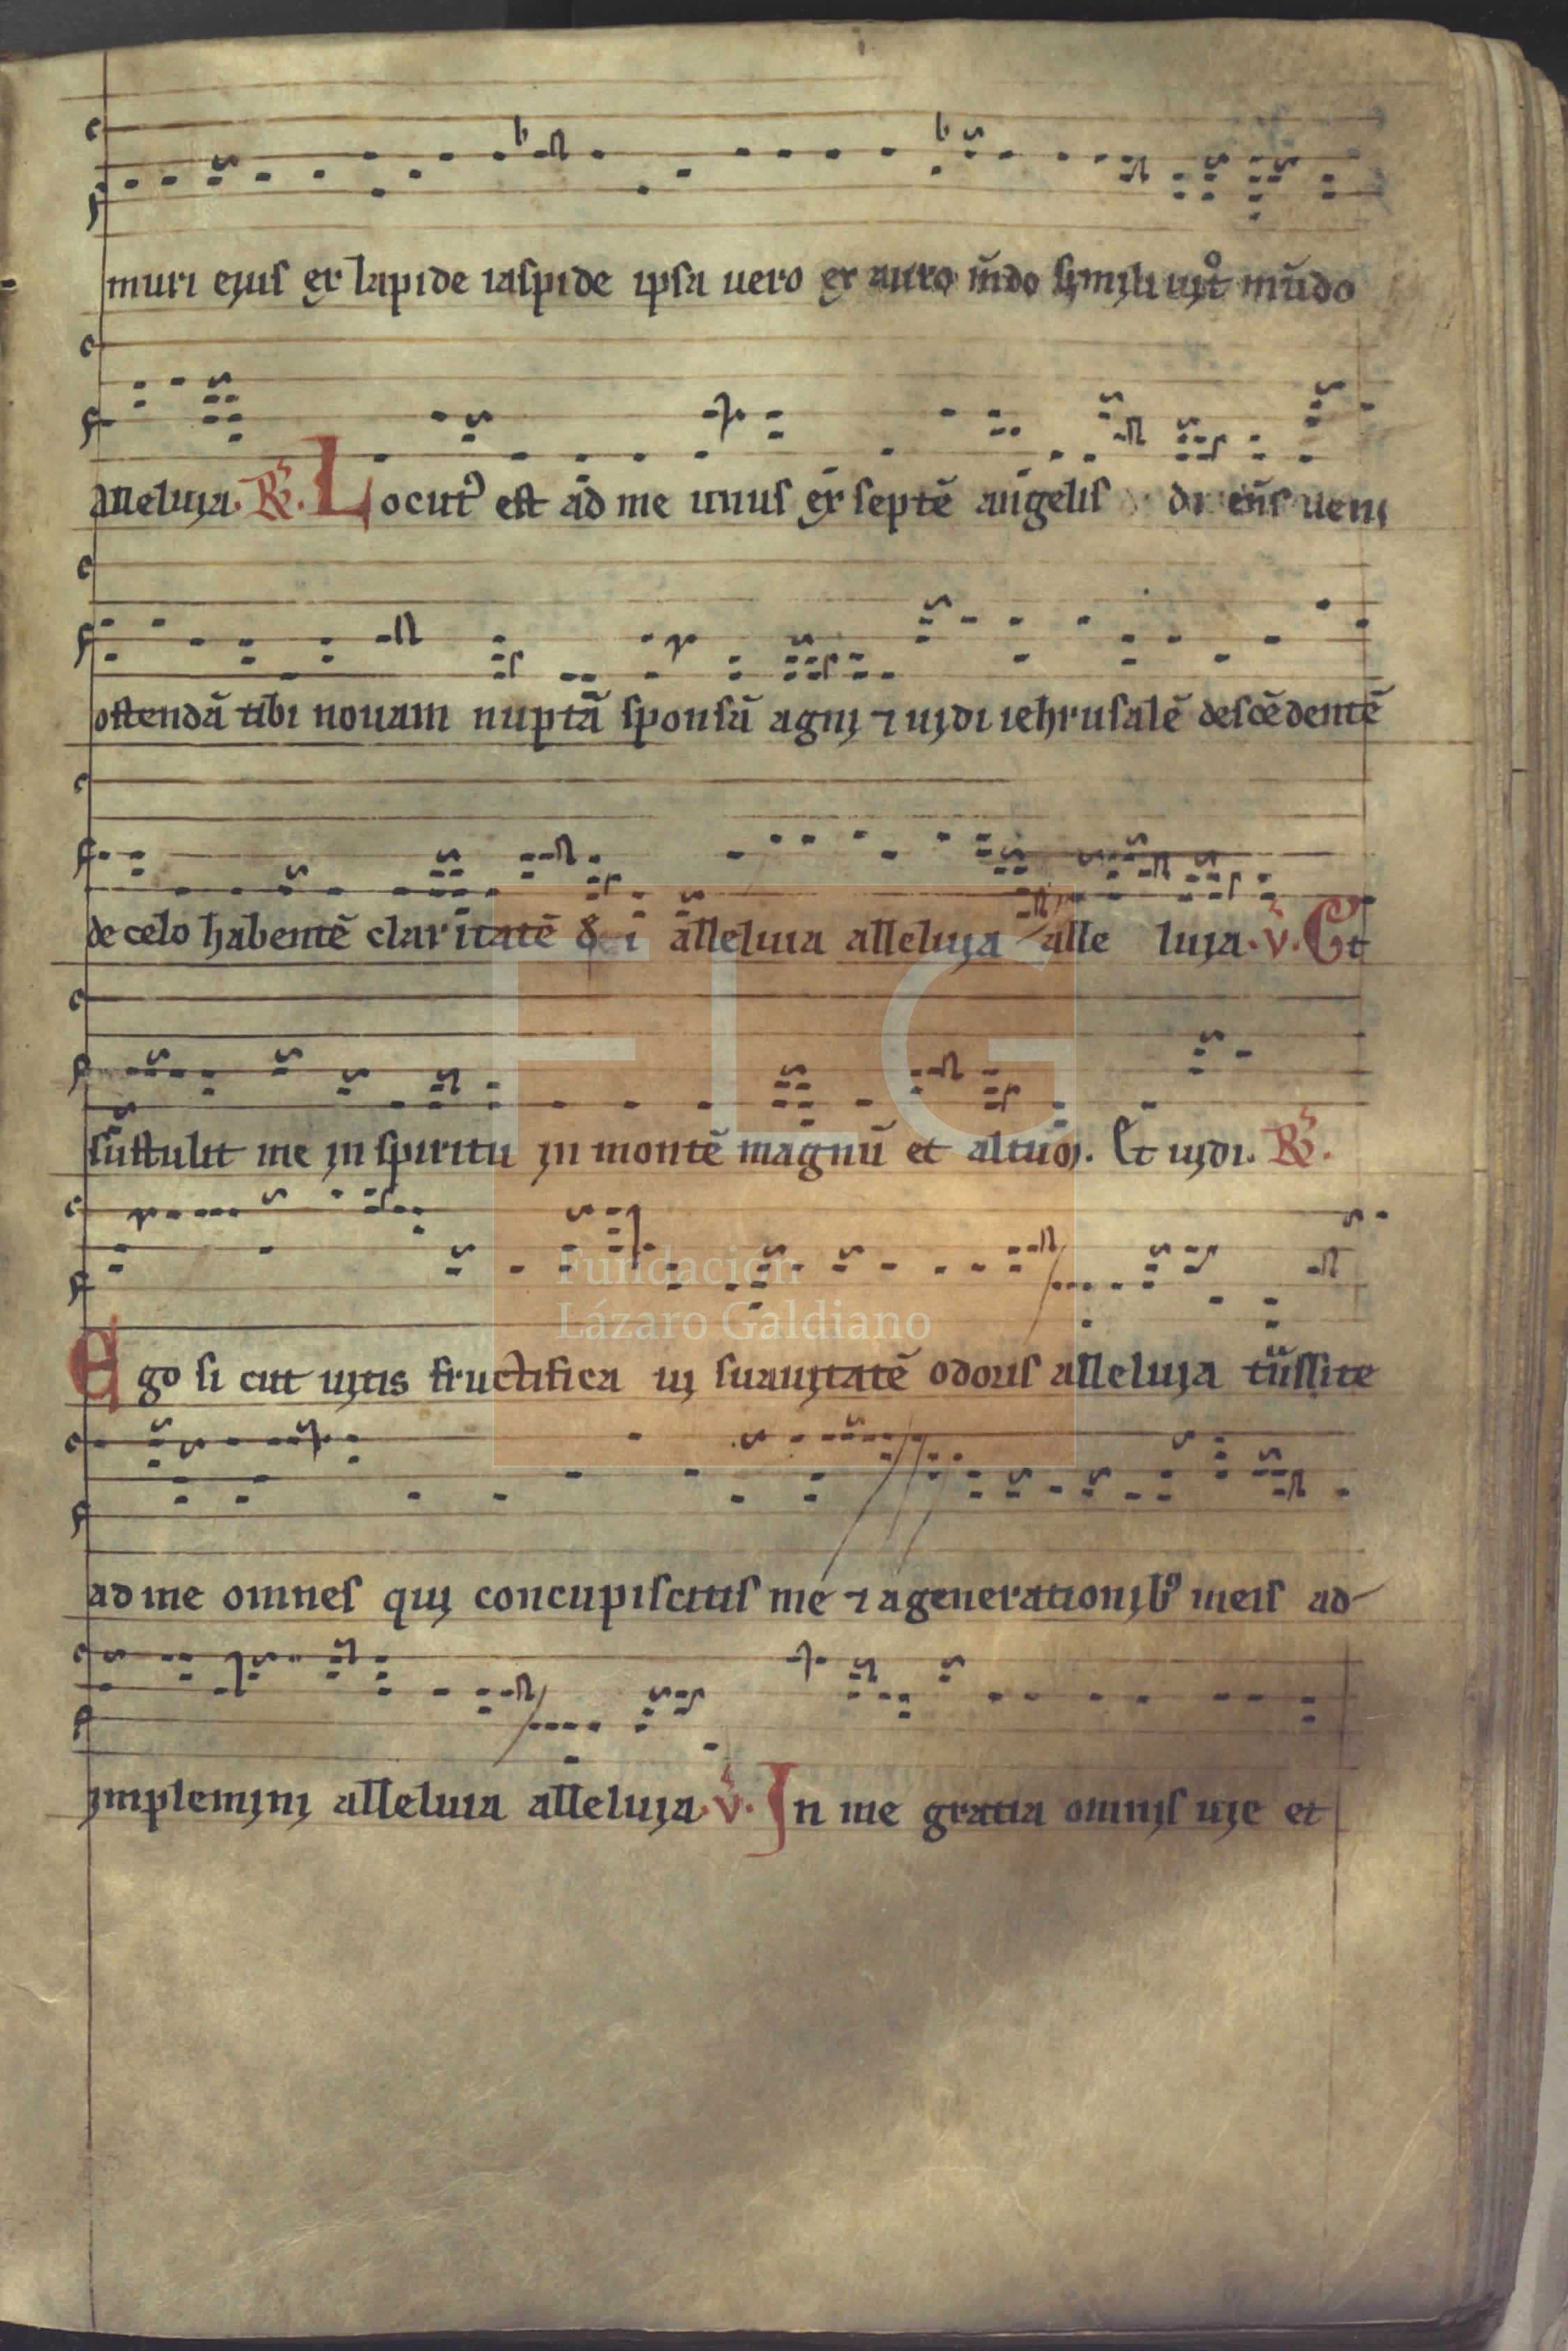 muri ejus ex lapide iaspide ipsa uero ex auro m̄do simili uit͛ mūdo
alleluja. R̷. Locut᾿ est ad me unus ex septē angelis dicēns ueni
ostendā tibi nouam nuptā sponsā agnj ⁊ ujdi iehrusalē descēdentē
de celo habentē claritatē dei alleluia alleluja alle luja. v̓. Et
sustulit me jn spiritu jn montē magnū et altuɔ. Et ujdi. R̷.
Ego si cut ujtis fructifica uj suaujtatē odoris alleluja tᷓnssite
ad me omnes quj concupiscitis me ⁊ a generationjb᾿ meis ad
jmplemjnj alleluia alleluja. v̓. In me gratia omnjs uje et
FLG
Fundación
Lázaro Galdiano